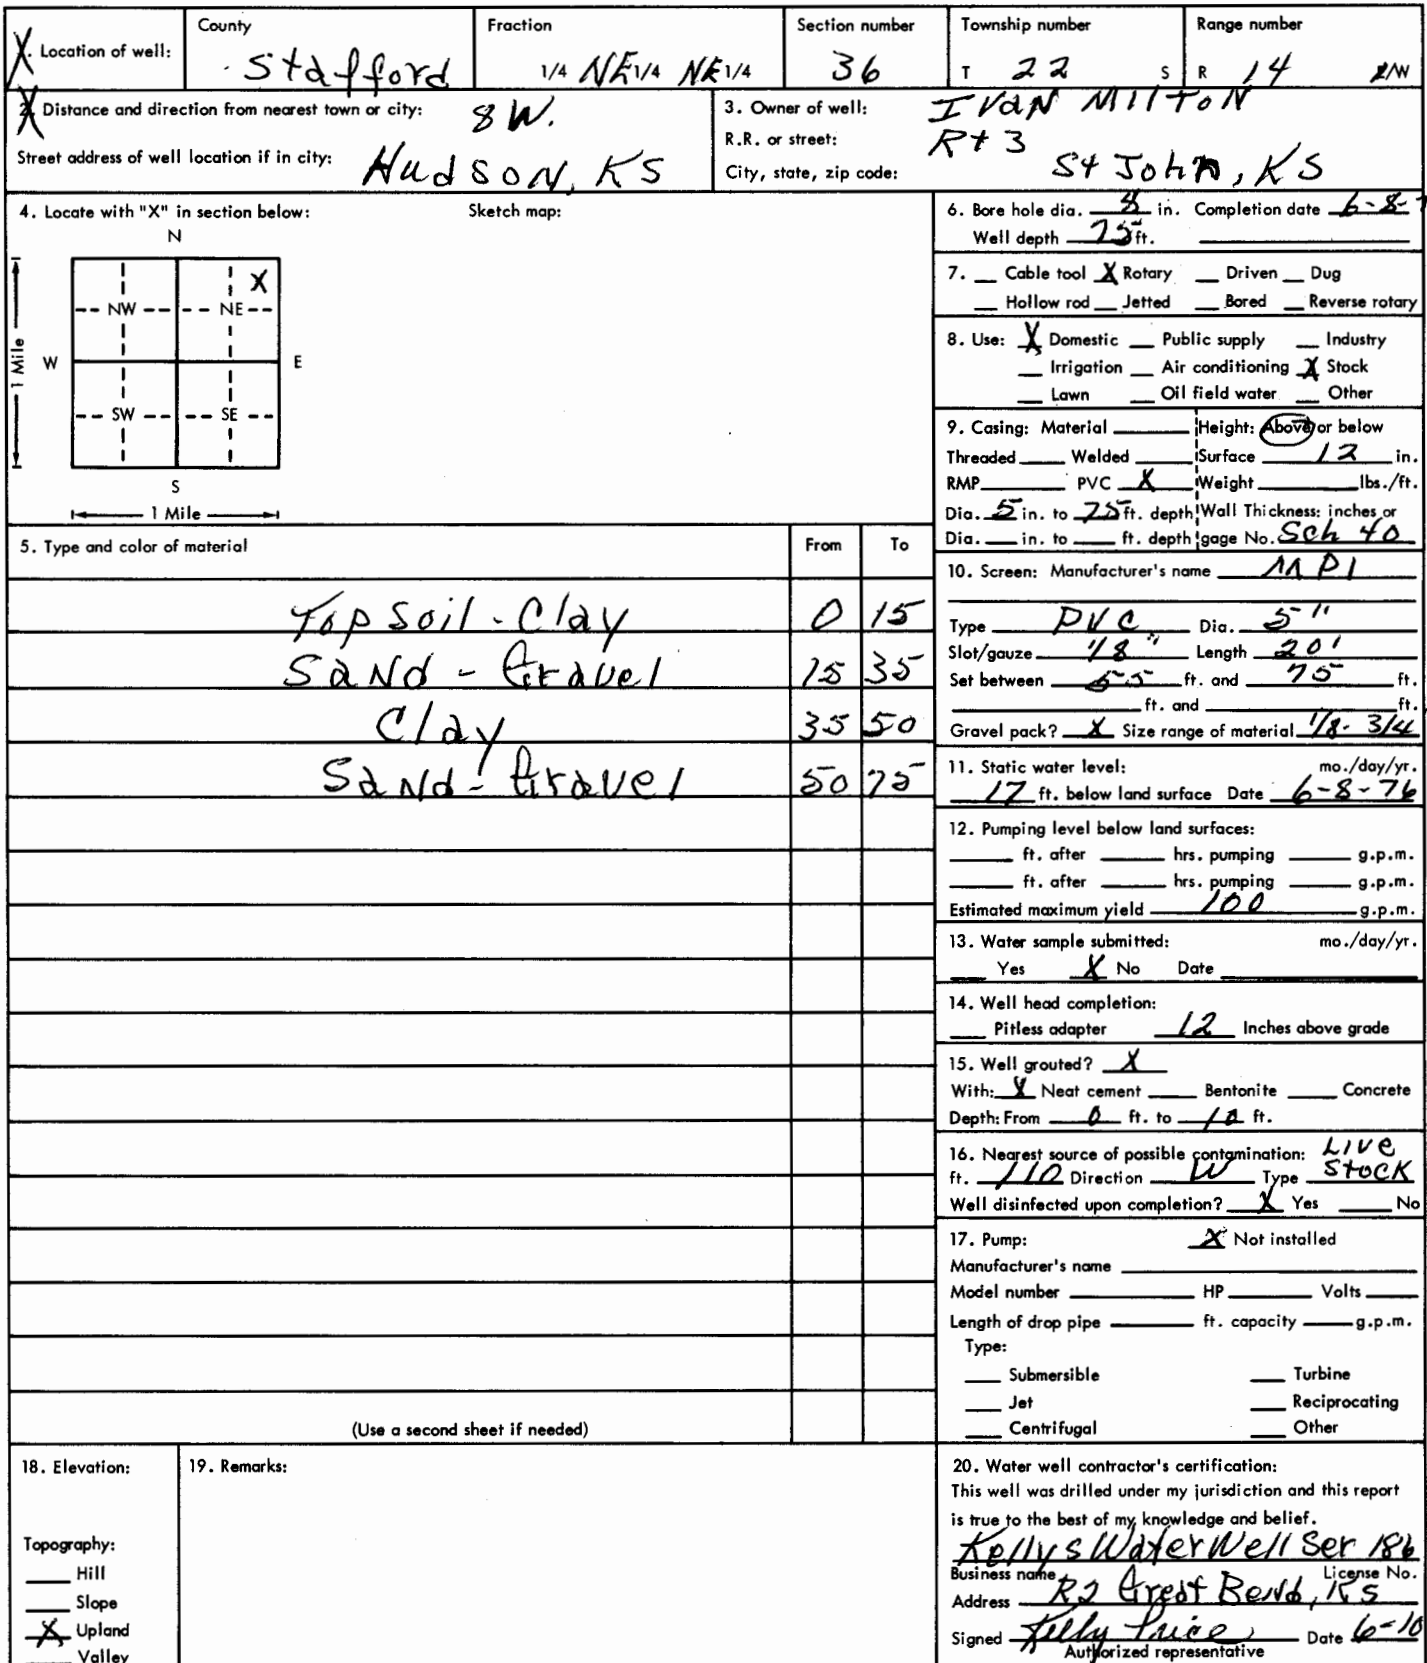 County Fraction Section number Township number Range number
X. Location of well: Stafford 1/4 NE 1/4 NE 1/4 36 T 22 S R 14 E/W
X Distance and direction from nearest town or city: 8 W. 3. Owner of well: Ivan Milton
R.R. or street: Rt 3
Street address of well location if in city: Hudson, KS City, state, zip code: St John, KS
4. Locate with "X" in section below: Sketch map:
N
X
NW NE
W E
SW SE
S
1 Mile
1 Mile
5. Type and color of material From To
Top Soil - Clay 0 15
Sand - Gravel 15 35
Clay 35 50
Sand - Gravel 50 75
(Use a second sheet if needed)
6. Bore hole dia. 8 in. Completion date 6-8-7
Well depth 75 ft.
7. Cable tool X Rotary Driven Dug
Hollow rod Jetted Bored Reverse rotary
8. Use: X Domestic Public supply Industry
Irrigation Air conditioning X Stock
Lawn Oil field water Other
9. Casing: Material Height: Above or below
Threaded Welded Surface 12 in.
RMP PVC X Weight lbs./ft.
Dia. 5 in. to 75 ft. depth Wall Thickness: inches or
Dia. in. to ft. depth gage No. Sch 40
10. Screen: Manufacturer's name MPI
Type PVC Dia. 5"
Slot/gauze 1/8" Length 20'
Set between 55 ft. and 75 ft.
ft. and ft.
Gravel pack? X Size range of material 1/8 - 3/4
11. Static water level: mo./day/yr.
17 ft. below land surface Date 6-8-76
12. Pumping level below land surfaces:
ft. after hrs. pumping g.p.m.
ft. after hrs. pumping g.p.m.
Estimated maximum yield 100 g.p.m.
13. Water sample submitted: mo./day/yr.
Yes X No Date
14. Well head completion:
Pitless adapter 12 Inches above grade
15. Well grouted? X
With: X Neat cement Bentonite Concrete
Depth: From 0 ft. to 10 ft.
16. Nearest source of possible contamination: Live
ft. 110 Direction W Type Stock
Well disinfected upon completion? X Yes No
17. Pump: X Not installed
Manufacturer's name
Model number HP Volts
Length of drop pipe ft. capacity g.p.m.
Type:
Submersible Turbine
Jet Reciprocating
Centrifugal Other
18. Elevation:
Topography:
Hill
Slope
X Upland
Valley
19. Remarks:
20. Water well contractor's certification:
This well was drilled under my jurisdiction and this report
is true to the best of my knowledge and belief.
Kellys Water Well Ser 186
Business name License No.
Address R2 Great Bend, KS
Signed Kelly Price Date 6-10
Authorized representative